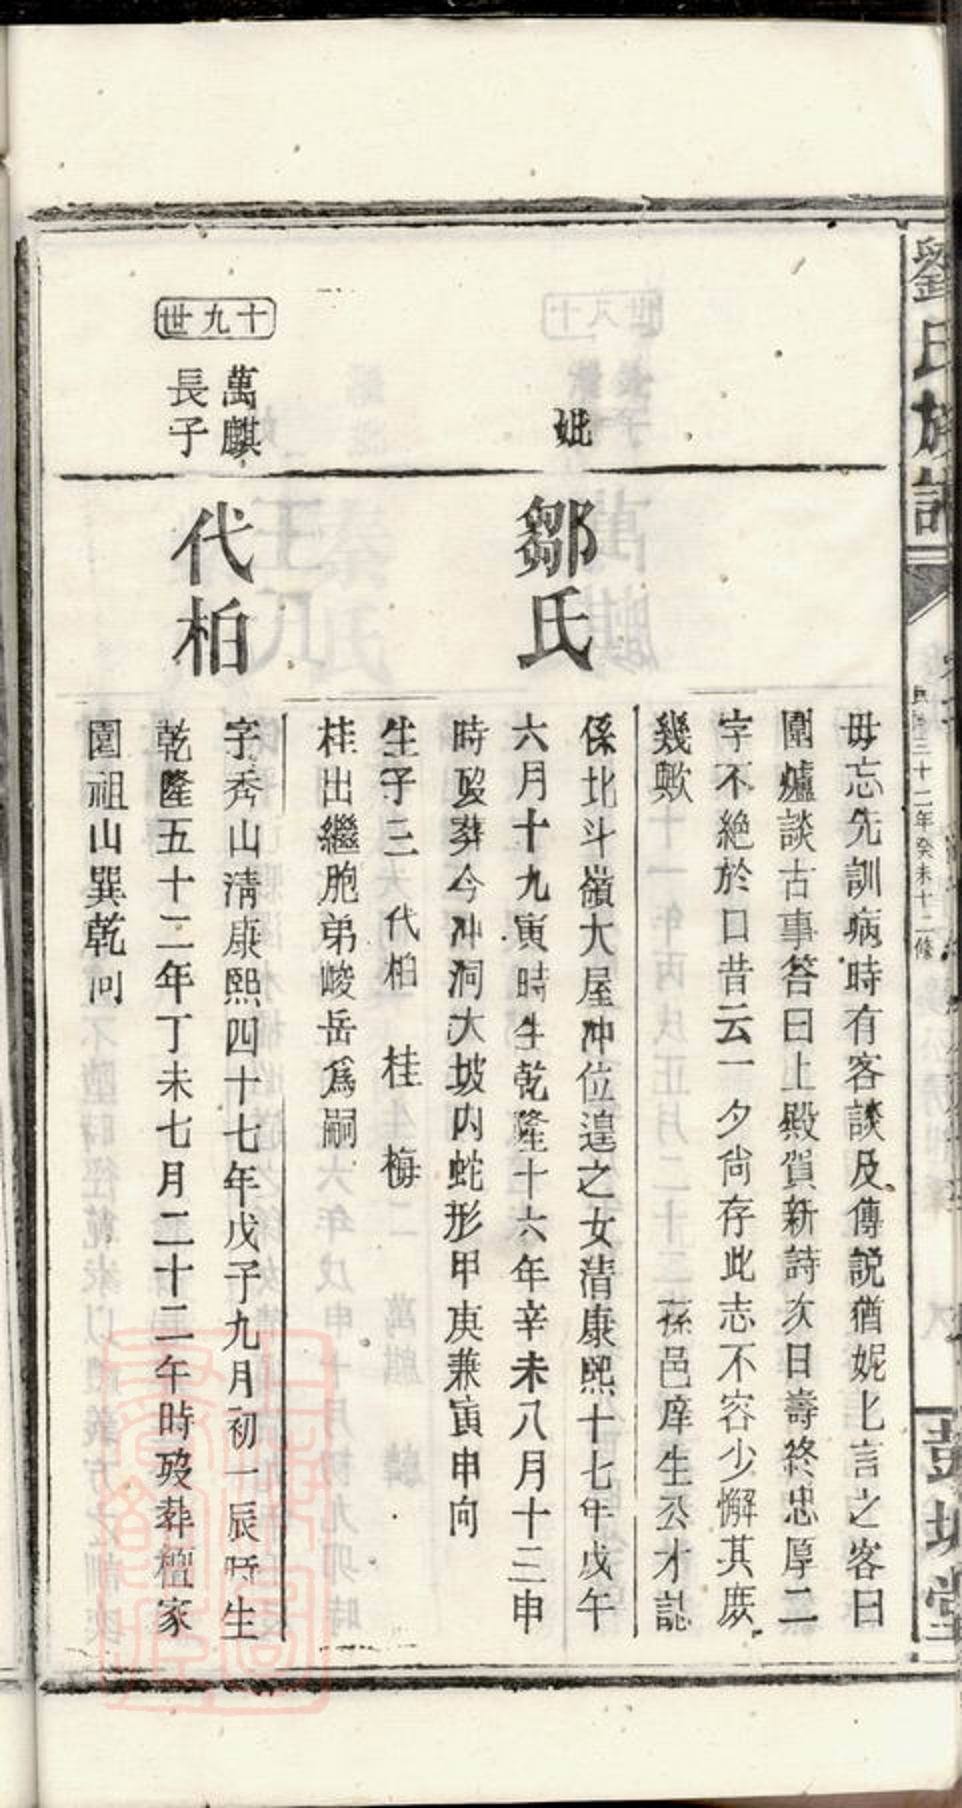 劉氏族譜
民國三十二年癸未十二修
彭城堂
毋忘先訓病時有客談及傅説猶妮匕言之客曰
圍爐談古事答曰上殿賀新詩次日壽終忠厚二
字不絶於口昔云一夕尙存此志不容少懈其庶
幾歟 孫邑庠生公才誌
妣
鄒氏
係北斗嶺大屋冲位遑之女清康熙十七年戊午
六月十九寅時生乾隆十六年辛未八月十三申
時歿葬今冲洞大坡内蛇形甲庚兼寅申向
生子三 代柏 桂 梅
桂出繼胞弟峻岳爲嗣
十九世
萬麒
長子
代柏
字秀山清康熙四十七年戊子九月初一辰時生
乾隆五十二年丁未七月二十二午時歿葬檀家
園祖山巽乾向